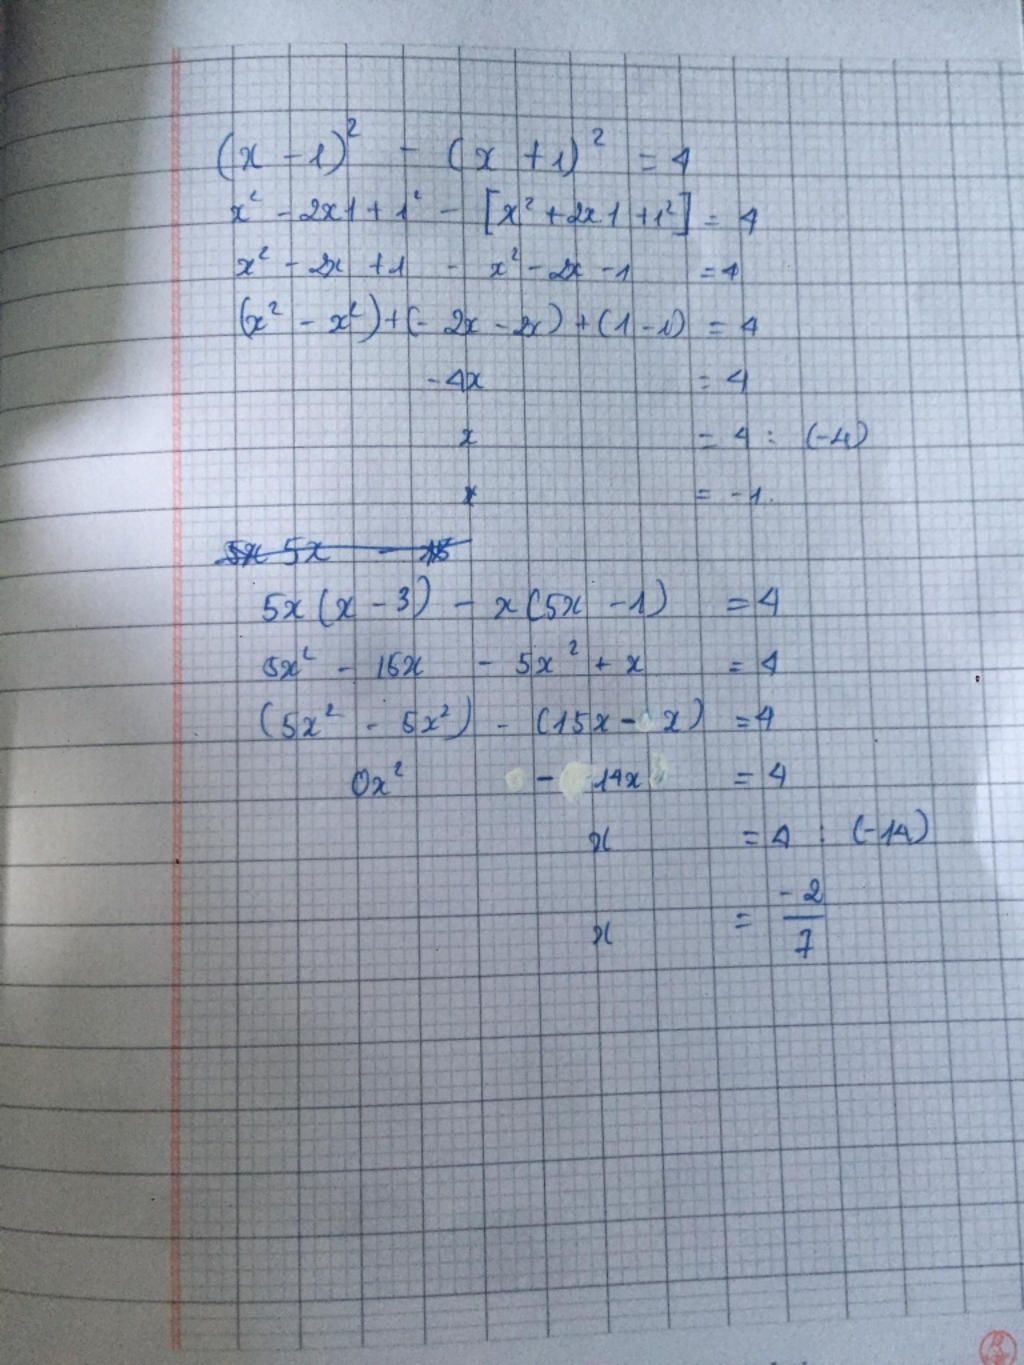 (x - 1)² - (x + 1)² = 4
x² - 2x1 + 1² - [x² + 2x1 + 1²] = 4
x² - 2x + 1 - x² - 2x - 1 = 4
(x² - x²) + (- 2x - 2x) + (1 - 1) = 4
- 4x = 4
x = 4 : (-4)
x = -1.
5x 5x - 15
5x (x - 3) - x (5x - 1) = 4
5x² - 15x - 5x² + x = 4
(5x² - 5x²) - (15x - x) = 4
0x² - 14x = 4
x = 4 : (-14)
x = -2/7